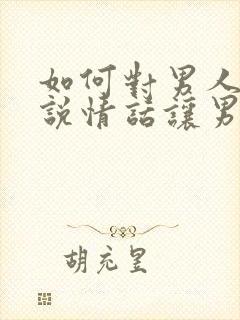 如何對男人
說情話讓男
胡充呈